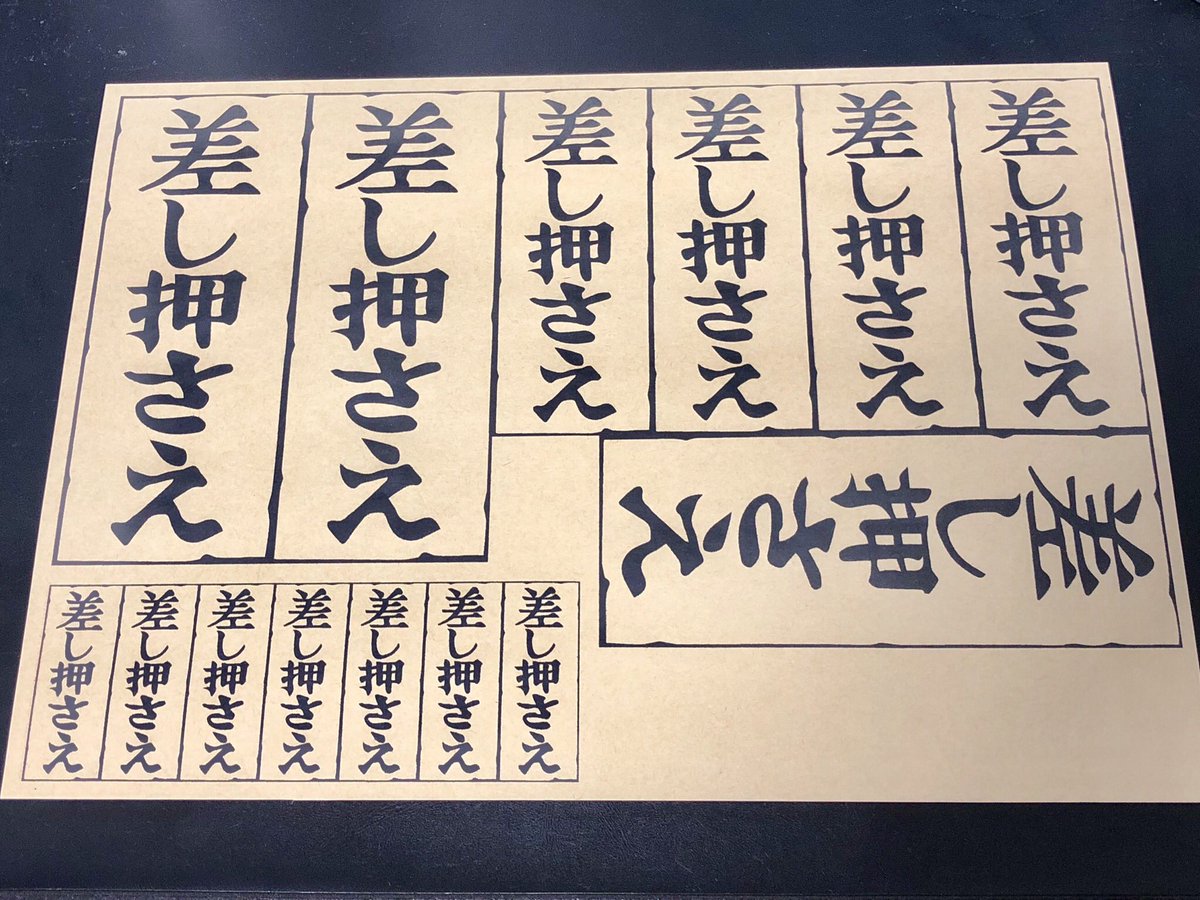 差し押さえ
差し押さえ
差し押さえ
差し押さえ
差し押さえ
差し押さえ
差し押さえ
差し押さえ
差し押さえ
差し押さえ
差し押さえ
差し押さえ
差し押さえ
差し押さえ